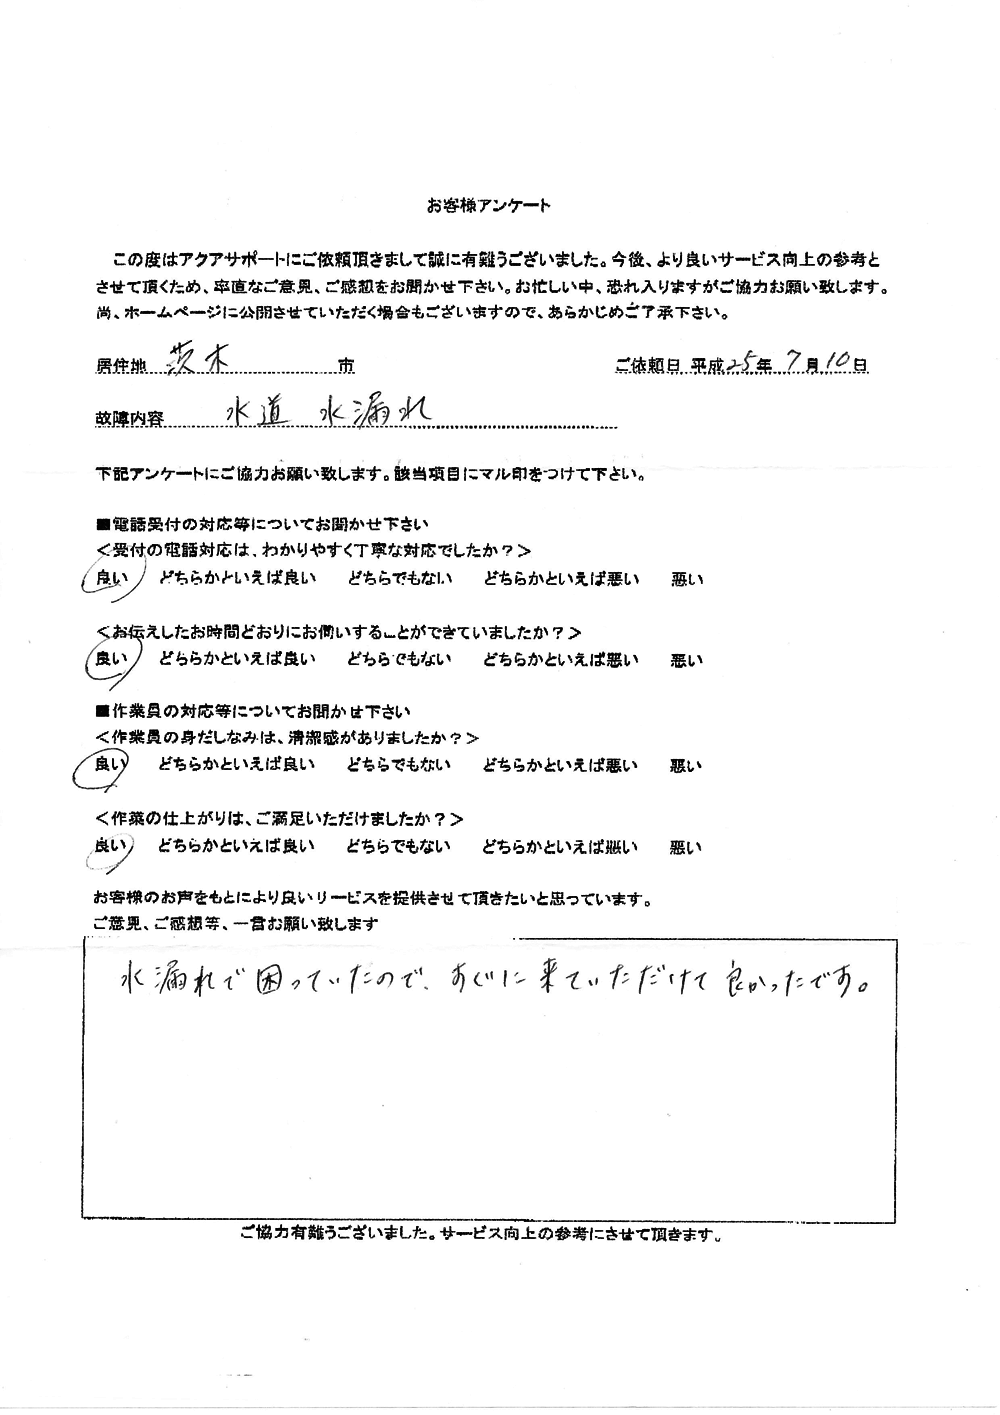 お客様アンケート
この度はアクアサポートにご依頼頂きまして誠に有難うございました。今後、より良いサービス向上の参考と
させて頂くため、率直なご意見、ご感想をお聞かせ下さい。お忙しい中、恐れ入りますがご協力お願い致します。
尚、ホームページに公開させていただく場合もございますので、あらかじめご了承下さい。
居住地 茨木 市 ご依頼日 平成25年7月10日
故障内容 水道 水漏れ
下記アンケートにご協力お願い致します。該当項目にマル印をつけて下さい。
■電話受付の対応等についてお聞かせ下さい
＜受付の電話対応は、わかりやすく丁寧な対応でしたか？＞
良い どちらかといえば良い どちらでもない どちらかといえば悪い 悪い
＜お伝えしたお時間どおりにお伺いすることができていましたか？＞
良い どちらかといえば良い どちらでもない どちらかといえば悪い 悪い
■作業員の対応等についてお聞かせ下さい
＜作業員の身だしなみは、清潔感がありましたか？＞
良い どちらかといえば良い どちらでもない どちらかといえば悪い 悪い
＜作業の仕上がりは、ご満足いただけましたか？＞
良い どちらかといえば良い どちらでもない どちらかといえば悪い 悪い
お客様のお声をもとにより良いサービスを提供させて頂きたいと思っています。
ご意見、ご感想等、一言お願い致します
水漏れで困っていたので、すぐに来ていただけて良かったです。
ご協力有難うございました。サービス向上の参考にさせて頂きます。